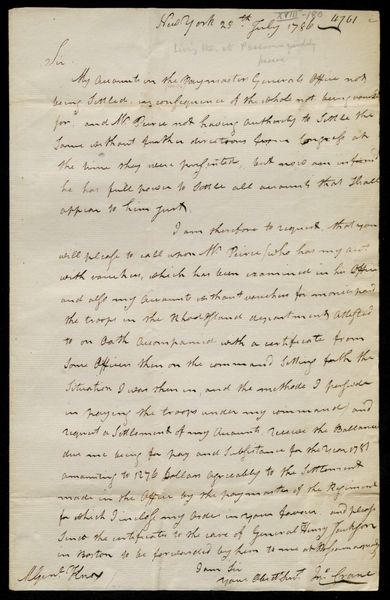 XVIII-190
New York 25th July 1786
4761
Living then at Passamaquoddy
Sir
My Account in the Paymaster Generals Office not
being Settled, in consequence of the whole not being vouch'd
for, and Mr Peirce not having Authority to Settle the
Same without further directions from Congress at
the time they were presented, but now am inform'd
he has full power to Settle all accounts that Shall
appear to him just
I am therefore to request that you
will please to call upon Mr Peirce (who has my acct
with vouchers, which has been examined in his Office
and also my Account without vouchers for monies paid
the troops in the Rhode Island department, Attested
to on Oath Accompanied with a certificate from
Some Officer then on the command Setting forth the
Situation I was then in, and the methods I pursued
in paying the troops under my command, and
request a Settlement of my Accounts, receive the Ballance
due me being for pay and Subsistance for the Year 1781
amounting to 1276 Dollars agreeably to the Settlement
made in the Office by the paymaster of the Regiment
for which I inclose my Order in your favour and please
Send the certificate to the care of General Henry Jackson
in Boston to be forwarded by him to me at Passamaquoddy
I am Sir
Your Obedt Servt Jno Crane
M Genl Knox